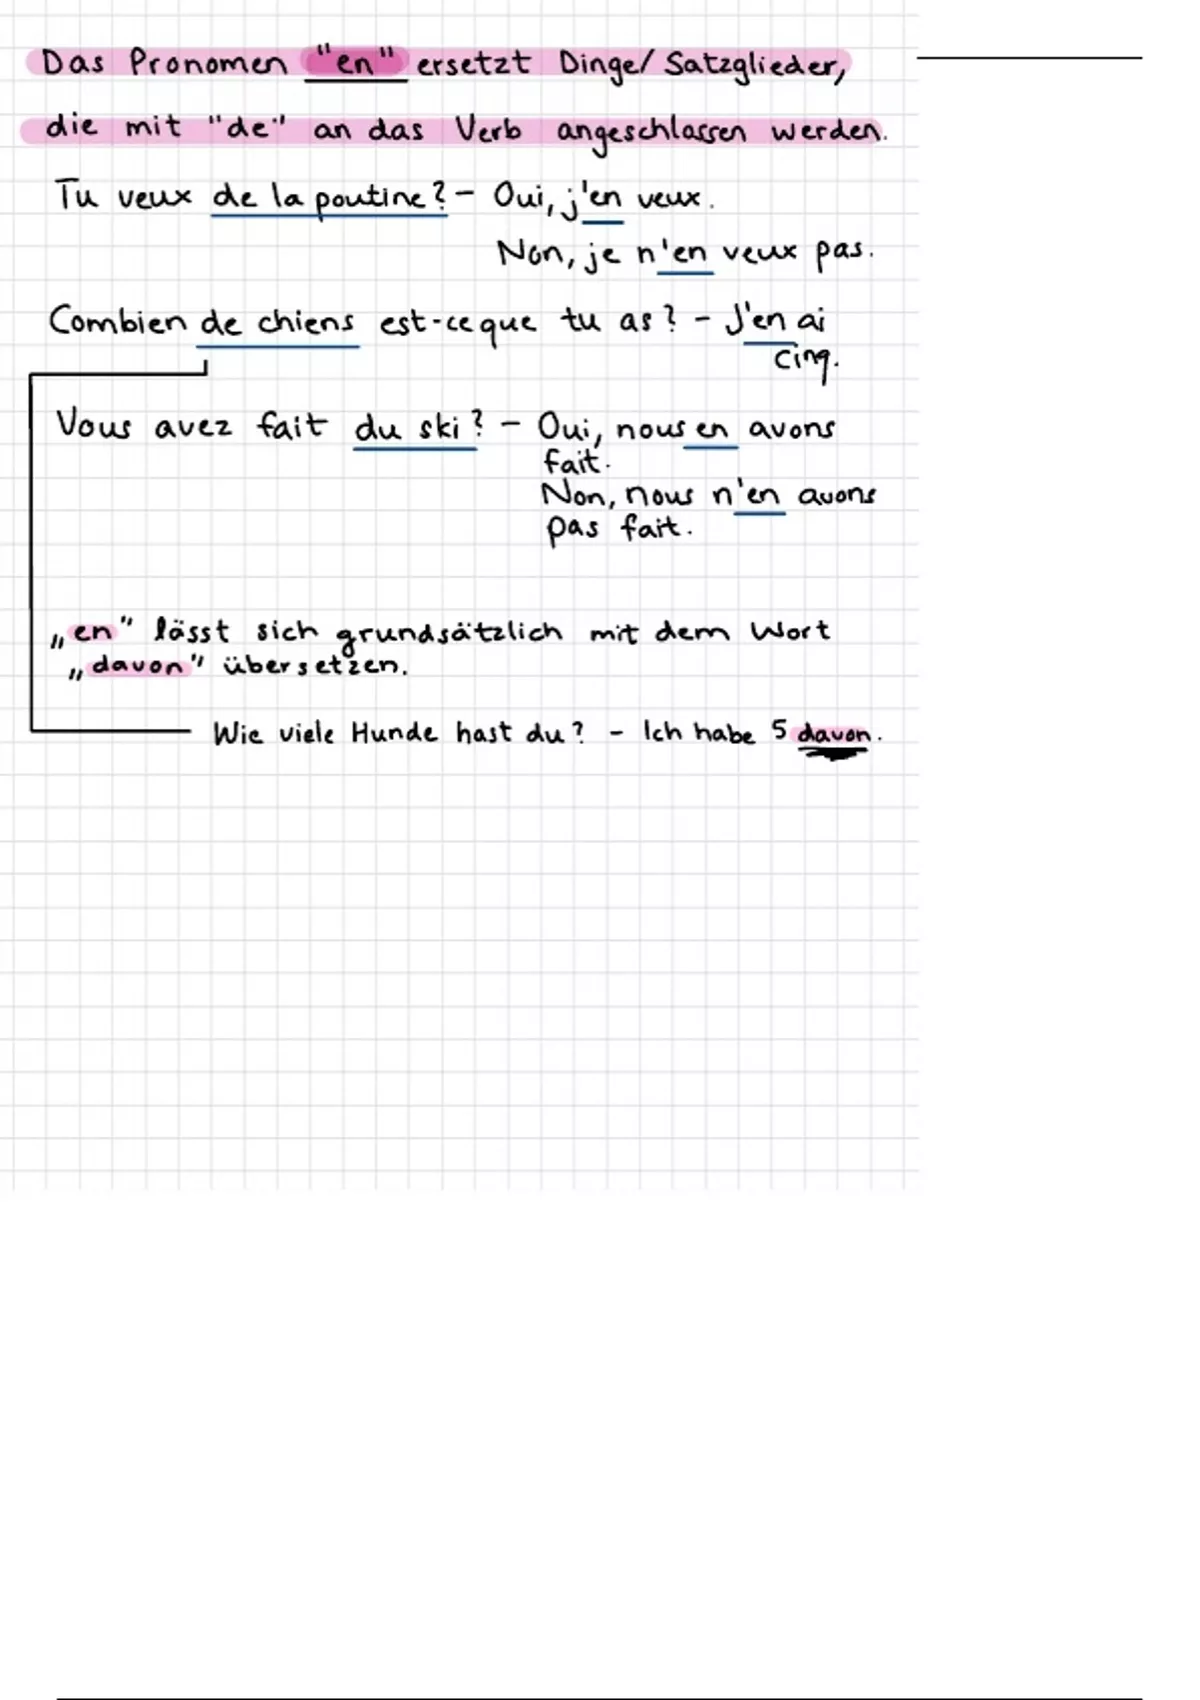 Das Pronomen "en" ersetzt Dinge/ Satzglieder,
die mit "de" an das Verb angeschlossen werden.
Tu veux de la poutine? - Oui, j'en veux.
Non, je n'en veux pas.
Combien de chiens est-ce que tu as? - J'en ai
cinq.
Vous avez fait du ski? - Oui, nous en avons
fait.
Non, nous n'en avons
pas fait.
„en" lässt sich grundsätzlich mit dem Wort
„davon" übersetzen.
Wie viele Hunde hast du? - Ich habe 5 davon.